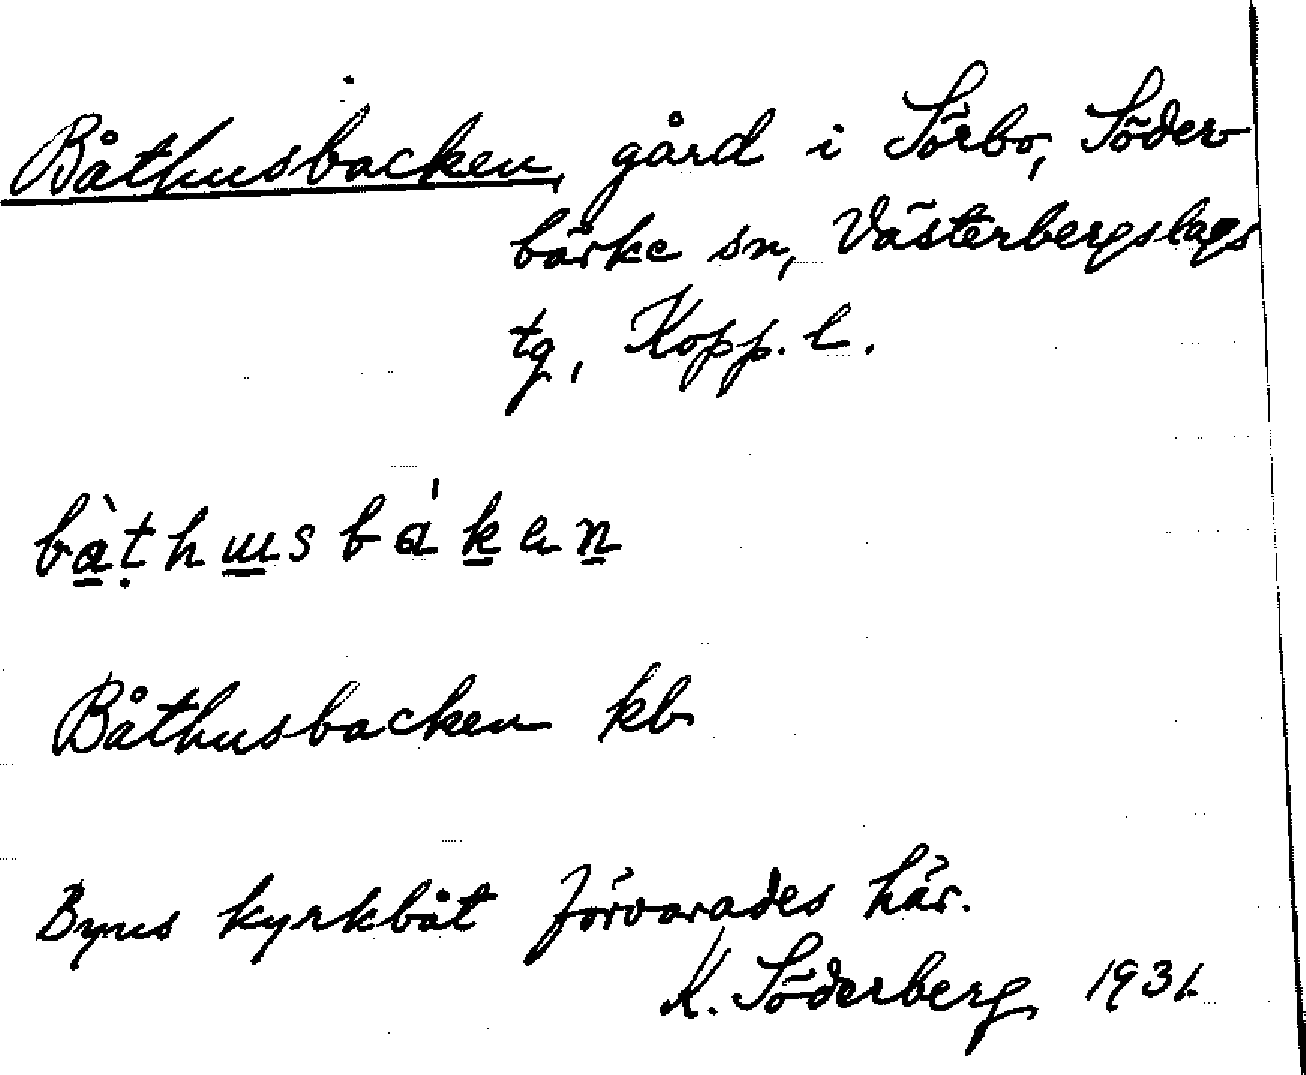 Båthusbacken, gård i Sörbo, Söder
bärke sn, Västerbergslags
tg, Kopp. l.
bàthusbákan
Båthusbacken kb
Byns kyrkbåt förvarades här.
K. Söderberg 1931.